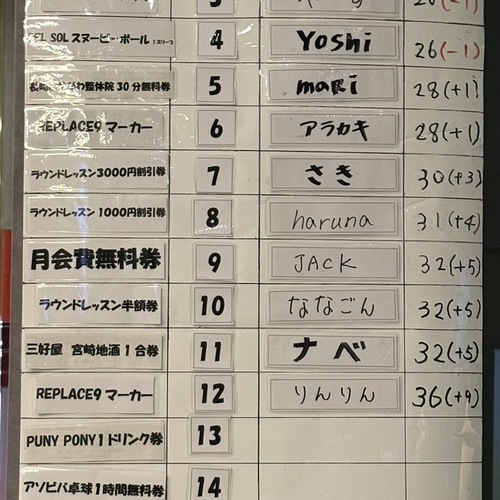 3
SOL スヌーピーボール 4 Yoshi 26(-1)
整体院 30分無料券 5 maRi 28(+1)
REPLACE9 マーカー 6 アラカキ 28(+1)
ラウンドレッスン3000円割引券 7 さき 30(+3)
ラウンドレッスン 1000円割引券 8 haruna 31(+4)
月会費無料券 9 JACK 32(+5)
ラウンドレッスン半額券 10 ななごん 32(+5)
三好屋 宮崎地酒1合券 11 ナベ 32(+5)
REPLACE9 マーカー 12 りんりん 36(+9)
PUNY PONY1ドリンク券 13
アソビバ卓球1時間無料券 14